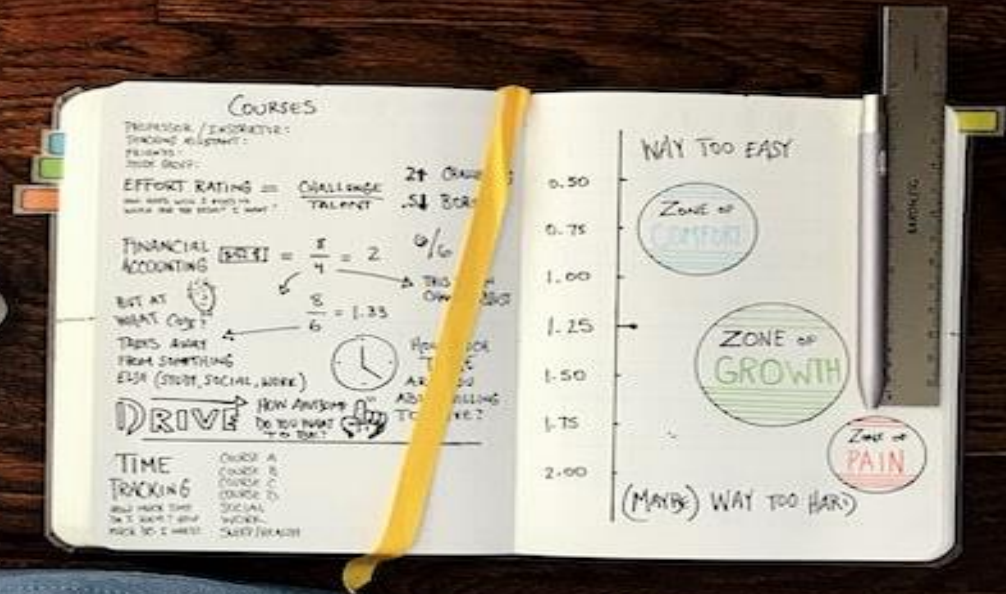 COURSES
PROFESSOR / INSTRUCTOR:
TEACHING ASSISTANT:
FRIENDS:
STUDY GROUP:
EFFORT RATING = CHALLENGE
TALENT
2↑
.5↓
FINANCIAL
ACCOUNTING
= 8/4 = 2
6/6
THIS
BUT AT
WHAT COST?
8/6 = 1.33
TAKES AWAY
FROM SOMETHING
ELSE (STUDY, SOCIAL, WORK)
DRIVE
HOW AWESOME
DO YOU WANT
TO BE?
TIME
TRACKING
HOW MUCH TIME
DO I HAVE? HOW
MUCH DO I WANT?
COURSE A
COURSE B
COURSE C
COURSE D
SOCIAL
WORK
SLEEP/HEALTH
WAY TOO EASY
0.50
0.75
1.00
1.25
1.50
1.75
2.00
ZONE OF
COMFORT
ZONE OF
GROWTH
ZONE OF
PAIN
(MAYBE) WAY TOO HARD